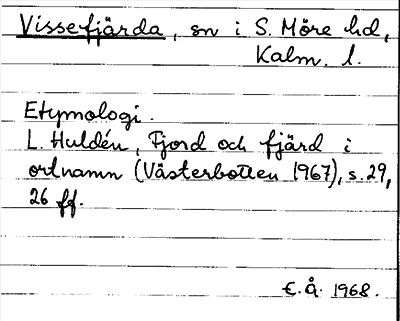 Vissefjärda, sn i S. Möre hd,
Kalm. l.
Etymologi.
L. Huldén, Fjord och fjärd i
ortnamn (Västerbotten 1967), s. 29,
26 ff.
E.Å. 1968.